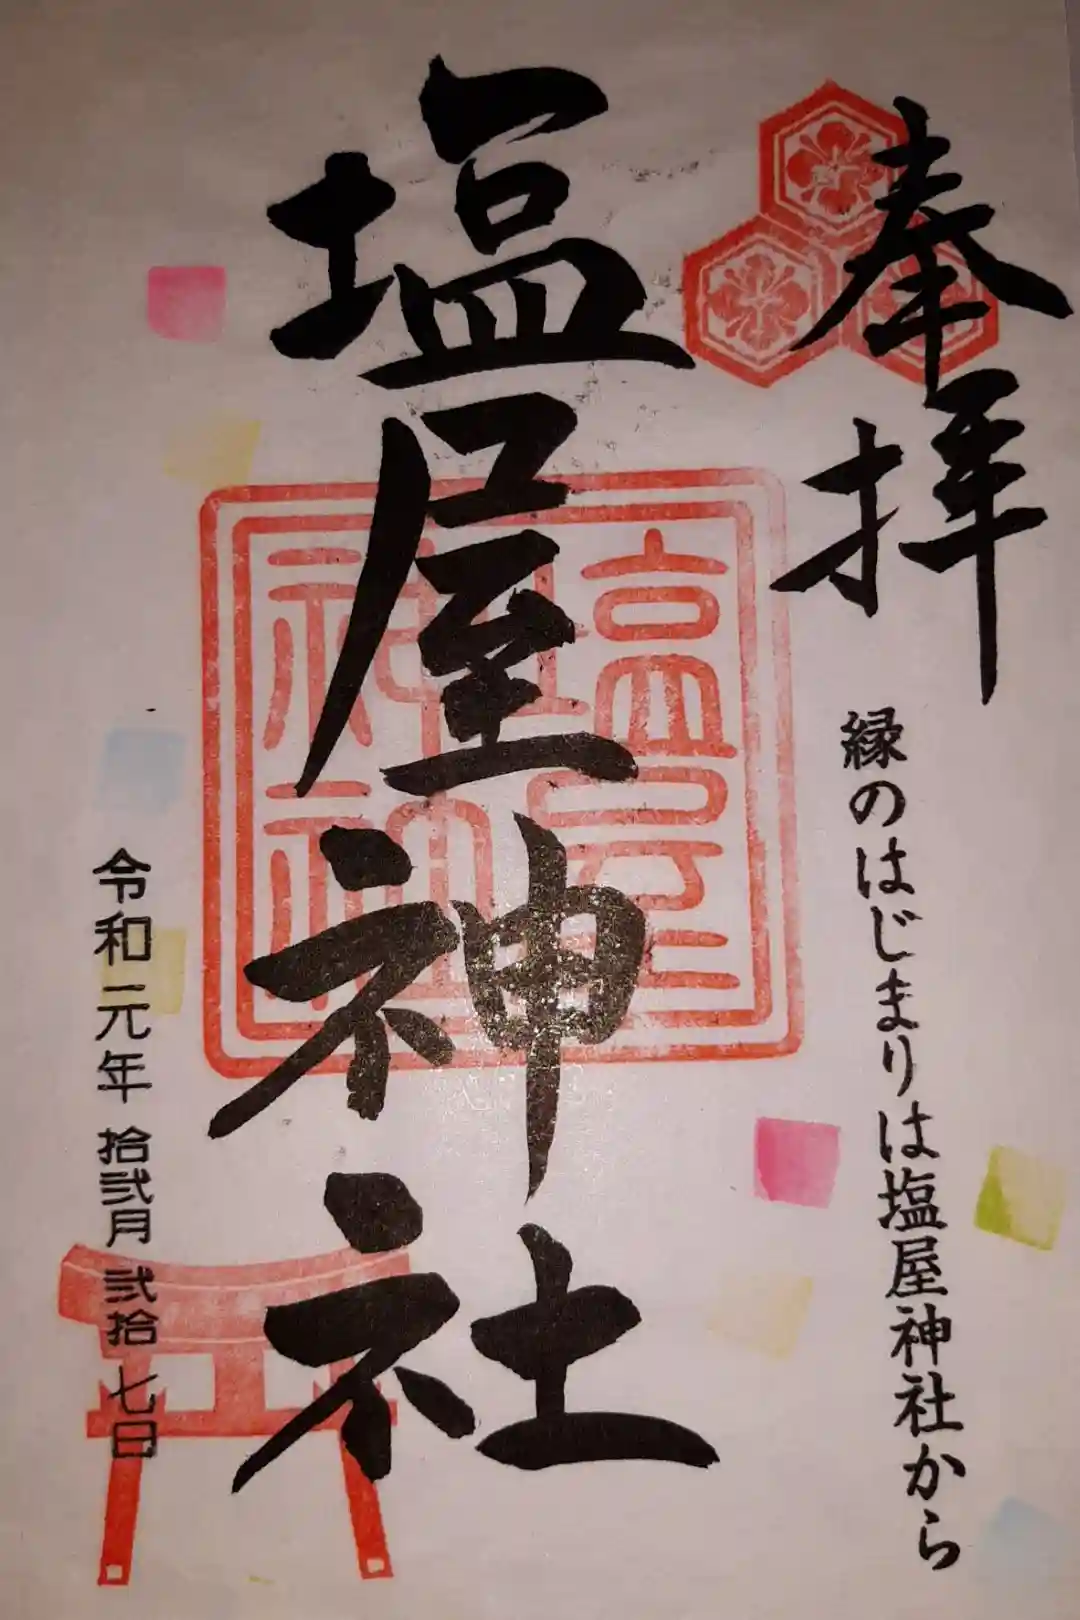 奉拝
縁のはじまりは塩屋神社から
塩屋神社
塩屋
神社
令和元年 拾弐月 弐拾七日